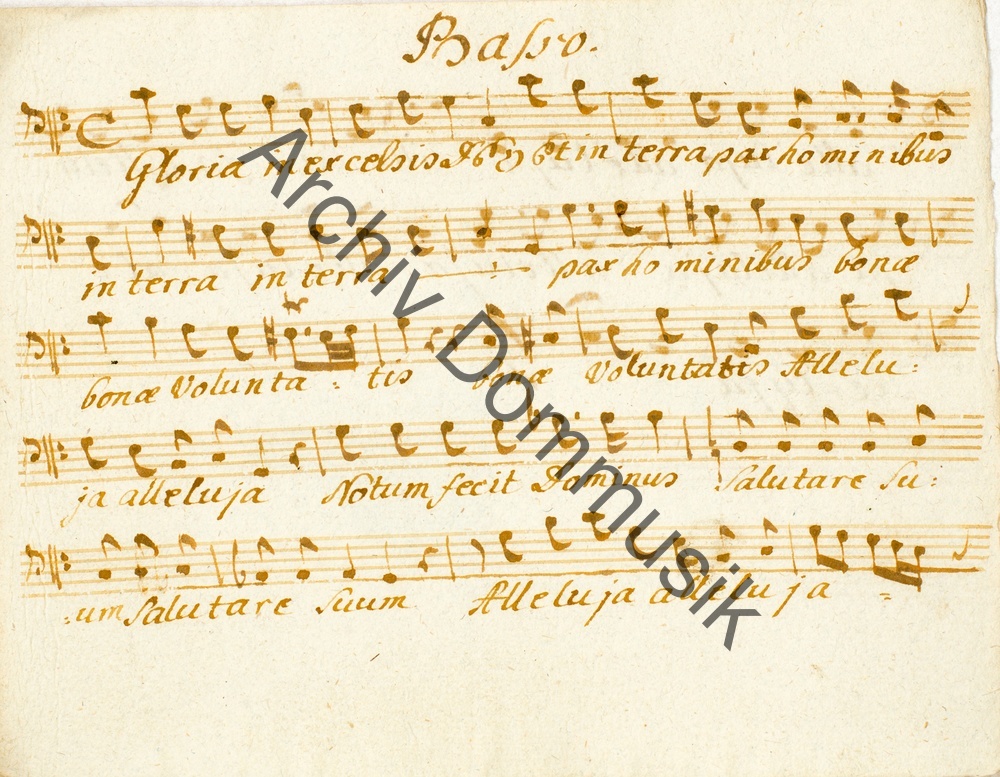 Basso.
Gloria in excelsis Deo Et in terra pax hominibus
in terra in terra pax hominibus bonæ
bonæ volunta = tis bonæ voluntatis Allelu:
ja alleluja Notum fecit Dominus Salutare su:
:um Salutare suum Alleluja alleluja =
Archiv Dommusik